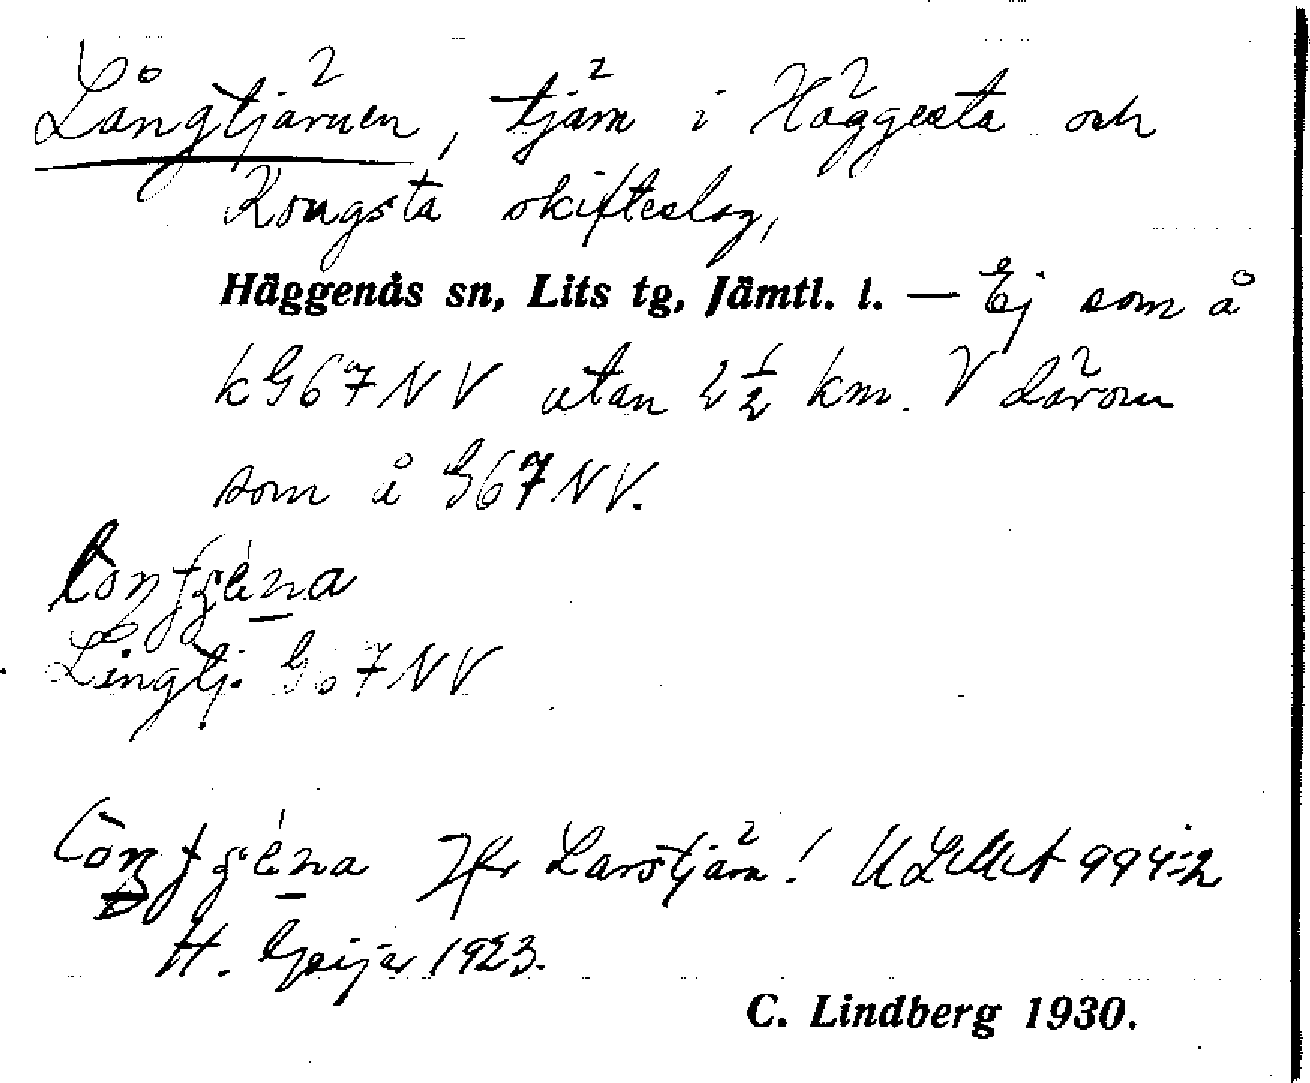 Långtjärnen, tjärn i Häggesta och
Kougsta skifteslag,
Häggenås sn, Lits tg, Jämtl. l. — Ej som å
kG67NV utan 2½ km. V därom
som å G67NV.
Långtj. G67NV
Jfr Larstjärn! ULMA 994:2
H. Geijer 1923.
C. Lindberg 1930.